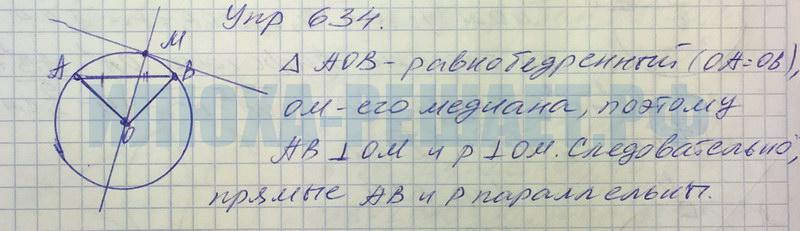 Упр 634.
M
A
B
O
Δ AOB - равнобедренный (OA=OB),
OM - его медиана, поэтому
AB ⊥ OM и p ⊥ OM. Следовательно,
прямые AB и p параллельны.
ИЛЮХА-РЕШАЕТ.РФ